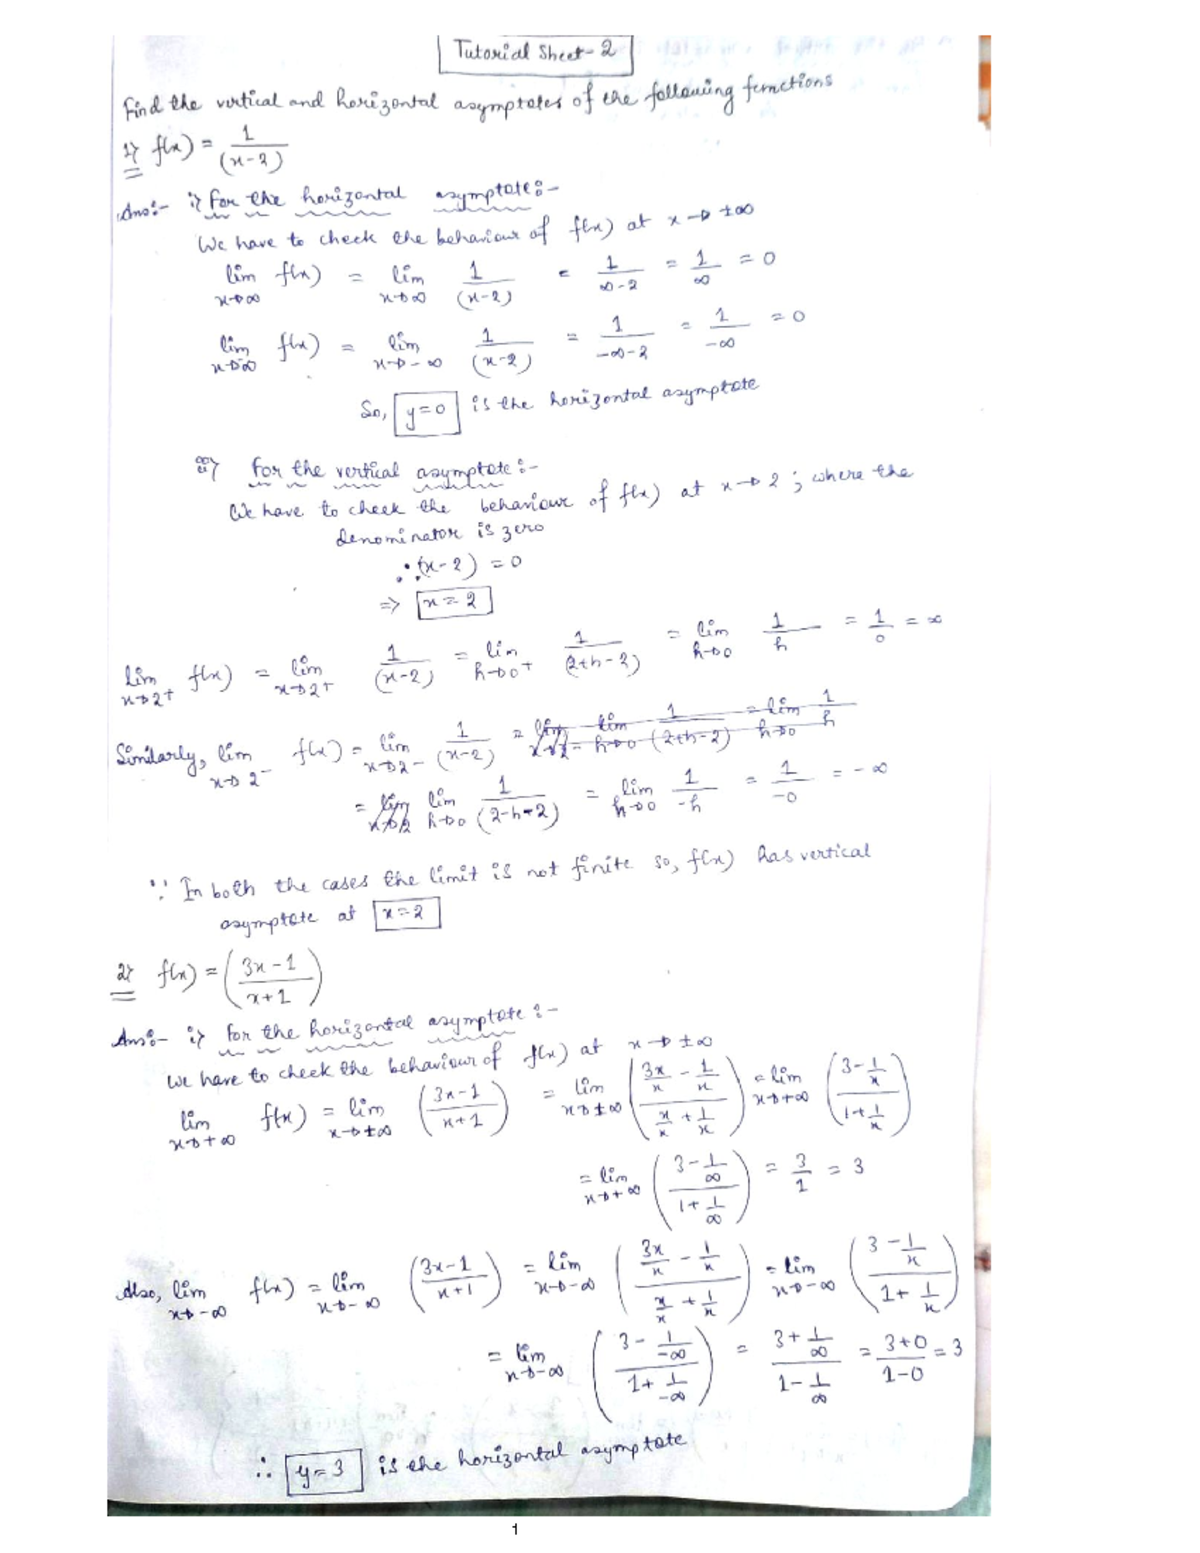 Tutorial Sheet-2
Find the vertical and horizontal asymptotes of the following functions
1> f(x) = 1/(x-2)
Ans:- i> For the horizontal asymptote:-
We have to check the behaviour of f(x) at x→±∞
lim x→∞ f(x) = lim x→∞ 1/(x-2) = 1/(∞-2) = 1/∞ = 0
lim x→-∞ f(x) = lim x→-∞ 1/(x-2) = 1/(-∞-2) = 1/-∞ = 0
So, y=0 is the horizontal asymptote
ii> For the vertical asymptote:-
We have to check the behaviour of f(x) at x→2 ; where the
denominator is zero
∴ (x-2) = 0
=> x=2
lim x→2+ f(x) = lim x→2+ 1/(x-2) = lim h→0+ 1/(2+h-2) = lim h→0 1/h = 1/0 = ∞
Similarly, lim x→2- f(x) = lim x→2- 1/(x-2)
= lim h→0 1/(2-h-2) = lim h→0 1/-h = 1/-0 = -∞
∵ In both the cases the limit is not finite so, f(x) has vertical
asymptote at x=2
2> f(x) = ((3x-1)/(x+1))
Ans:- i> For the horizontal asymptote:-
We have to check the behaviour of f(x) at x→±∞
lim x→+∞ f(x) = lim x→±∞ ((3x-1)/(x+1)) = lim x→±∞ ((3x/x - 1/x)/(x/x + 1/x)) = lim x→+∞ ((3-1/x)/(1+1/x))
= lim x→+∞ ((3-1/∞)/(1+1/∞)) = 3/1 = 3
Also, lim x→-∞ f(x) = lim x→-∞ ((3x-1)/(x+1)) = lim x→-∞ ((3x/x - 1/x)/(x/x + 1/x)) = lim x→-∞ ((3-1/x)/(1+1/x))
= lim x→-∞ ((3-1/-∞)/(1+1/-∞)) = (3+1/∞)/(1-1/∞) = (3+0)/(1-0) = 3
∴ y=3 is the horizontal asymptote
1